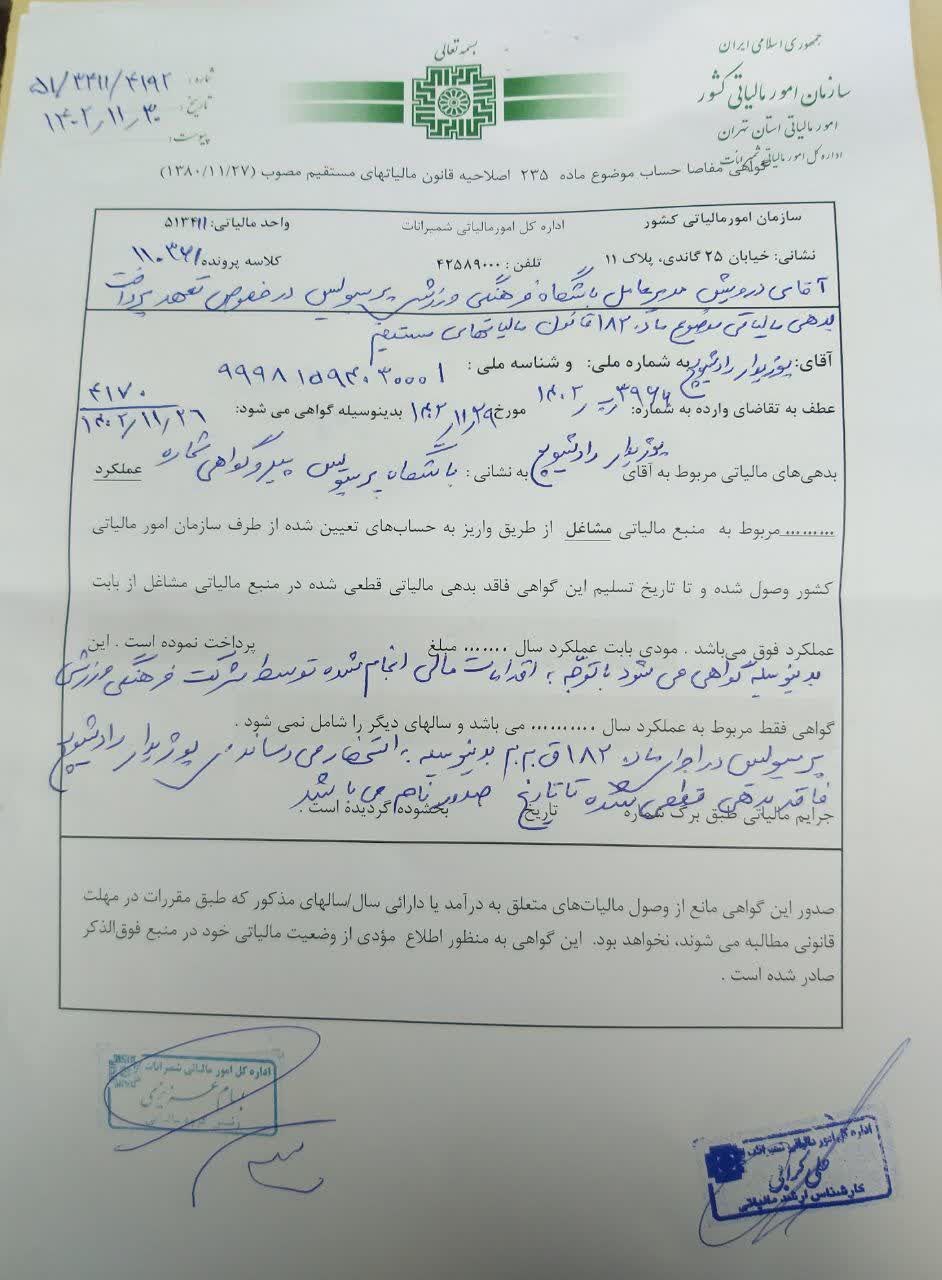 بسمه تعالی
جمهوری اسلامی ایران
سازمان امور مالیاتی کشور
امور مالیاتی استان تهران
اداره کل امور مالیاتی شمیرانات
شماره: ۵۱/۳۴۱۱/۴۱۹۲
تاریخ: ۱۴۰۲/۱۱/۳۰
پیوست:
گواهی مفاصا حساب موضوع ماده ۲۳۵ اصلاحیه قانون مالیاتهای مستقیم مصوب (۱۳۸۰/۱۱/۲۷)
سازمان امورمالیاتی کشور اداره کل امورمالیاتی شمیرانات واحد مالیاتی: ۵۱۳۴۱۱
نشانی: خیابان ۲۵ گاندی، پلاک ۱۱ تلفن: ۴۲۵۸۹۰۰۰ کلاسه پرونده
آقای درویش مدیرعامل باشگاه فرهنگی ورزشی پرسپولیس در خصوص تعهد پرداخت
بدهی مالیاتی موضوع ماده ۱۸۲ قانون مالیاتهای مستقیم
آقای: بوژیدار رادشویچ به شماره ملی: و شناسه ملی:
عطف به تقاضای وارده به شماره: مورخ ۱۴۰۲/۱۱/۲۹ بدینوسیله گواهی می شود: ۴۱۷۰
۱۴۰۲/۱۱/۲۶
بدهی‌های مالیاتی مربوط به آقای بوژیدار رادشویچ به نشانی: باشگاه پرسپولیس پیرو گواهی شماره عملکرد
......... مربوط به منبع مالیاتی مشاغل از طریق واریز به حساب‌های تعیین شده از طرف سازمان امور مالیاتی
کشور وصول شده و تا تاریخ تسلیم این گواهی فاقد بدهی مالیاتی قطعی شده در منبع مالیاتی مشاغل از بابت
عملکرد فوق می‌باشد . مودی بابت عملکرد سال ....... مبلغ پرداخت نموده است . این
بدینوسیله گواهی می شود با توجه به اقدامات مالی انجام شده توسط شرکت فرهنگی ورزشی
گواهی فقط مربوط به عملکرد سال .......... می باشد و سالهای دیگر را شامل نمی شود .
پرسپولیس در اجرای ماده ۱۸۲ ق.م.م بدینوسیله به استحضار می رساند بوژیدار رادشویچ
فاقد بدهی قطعی شده تا تاریخ صدور نامه می باشد
جرایم مالیاتی طبق برگ شماره تاریخ بخشوده گردیده است .
صدور این گواهی مانع از وصول مالیات‌های متعلق به درآمد یا دارائی سال/سالهای مذکور که طبق مقررات در مهلت
قانونی مطالبه می شوند، نخواهد بود. این گواهی به منظور اطلاع مؤدی از وضعیت مالیاتی خود در منبع فوق‌الذکر
صادر شده است .
اداره کل امور مالیاتی شمیرانات
عزیزی
اداره کل امور مالیاتی شمیرانات
کارشناس ارشد مالیاتی